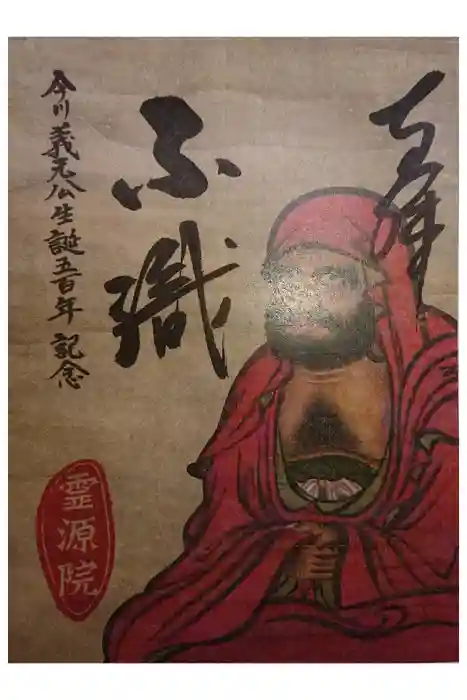 奉拝
不識
今川義元公生誕五百年 記念
霊源院